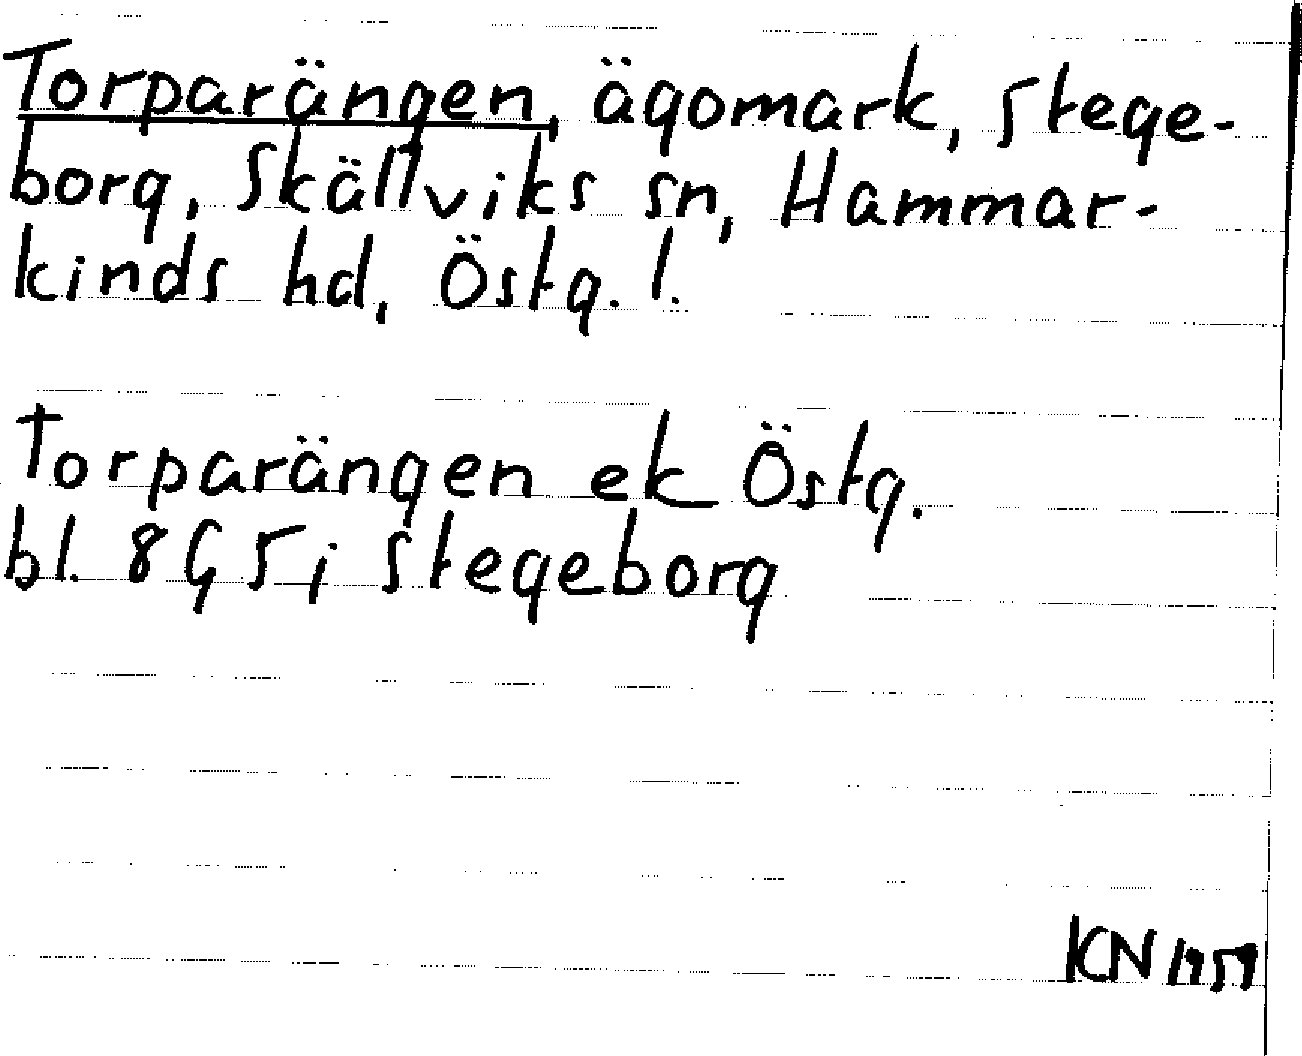 Torparängen, ägomark, Stege-
borg, Skällviks sn, Hammar-
kinds hd, Östg. l.
Torparängen ek Östg.
bl. 8G5i Stegeborg
KN 1959